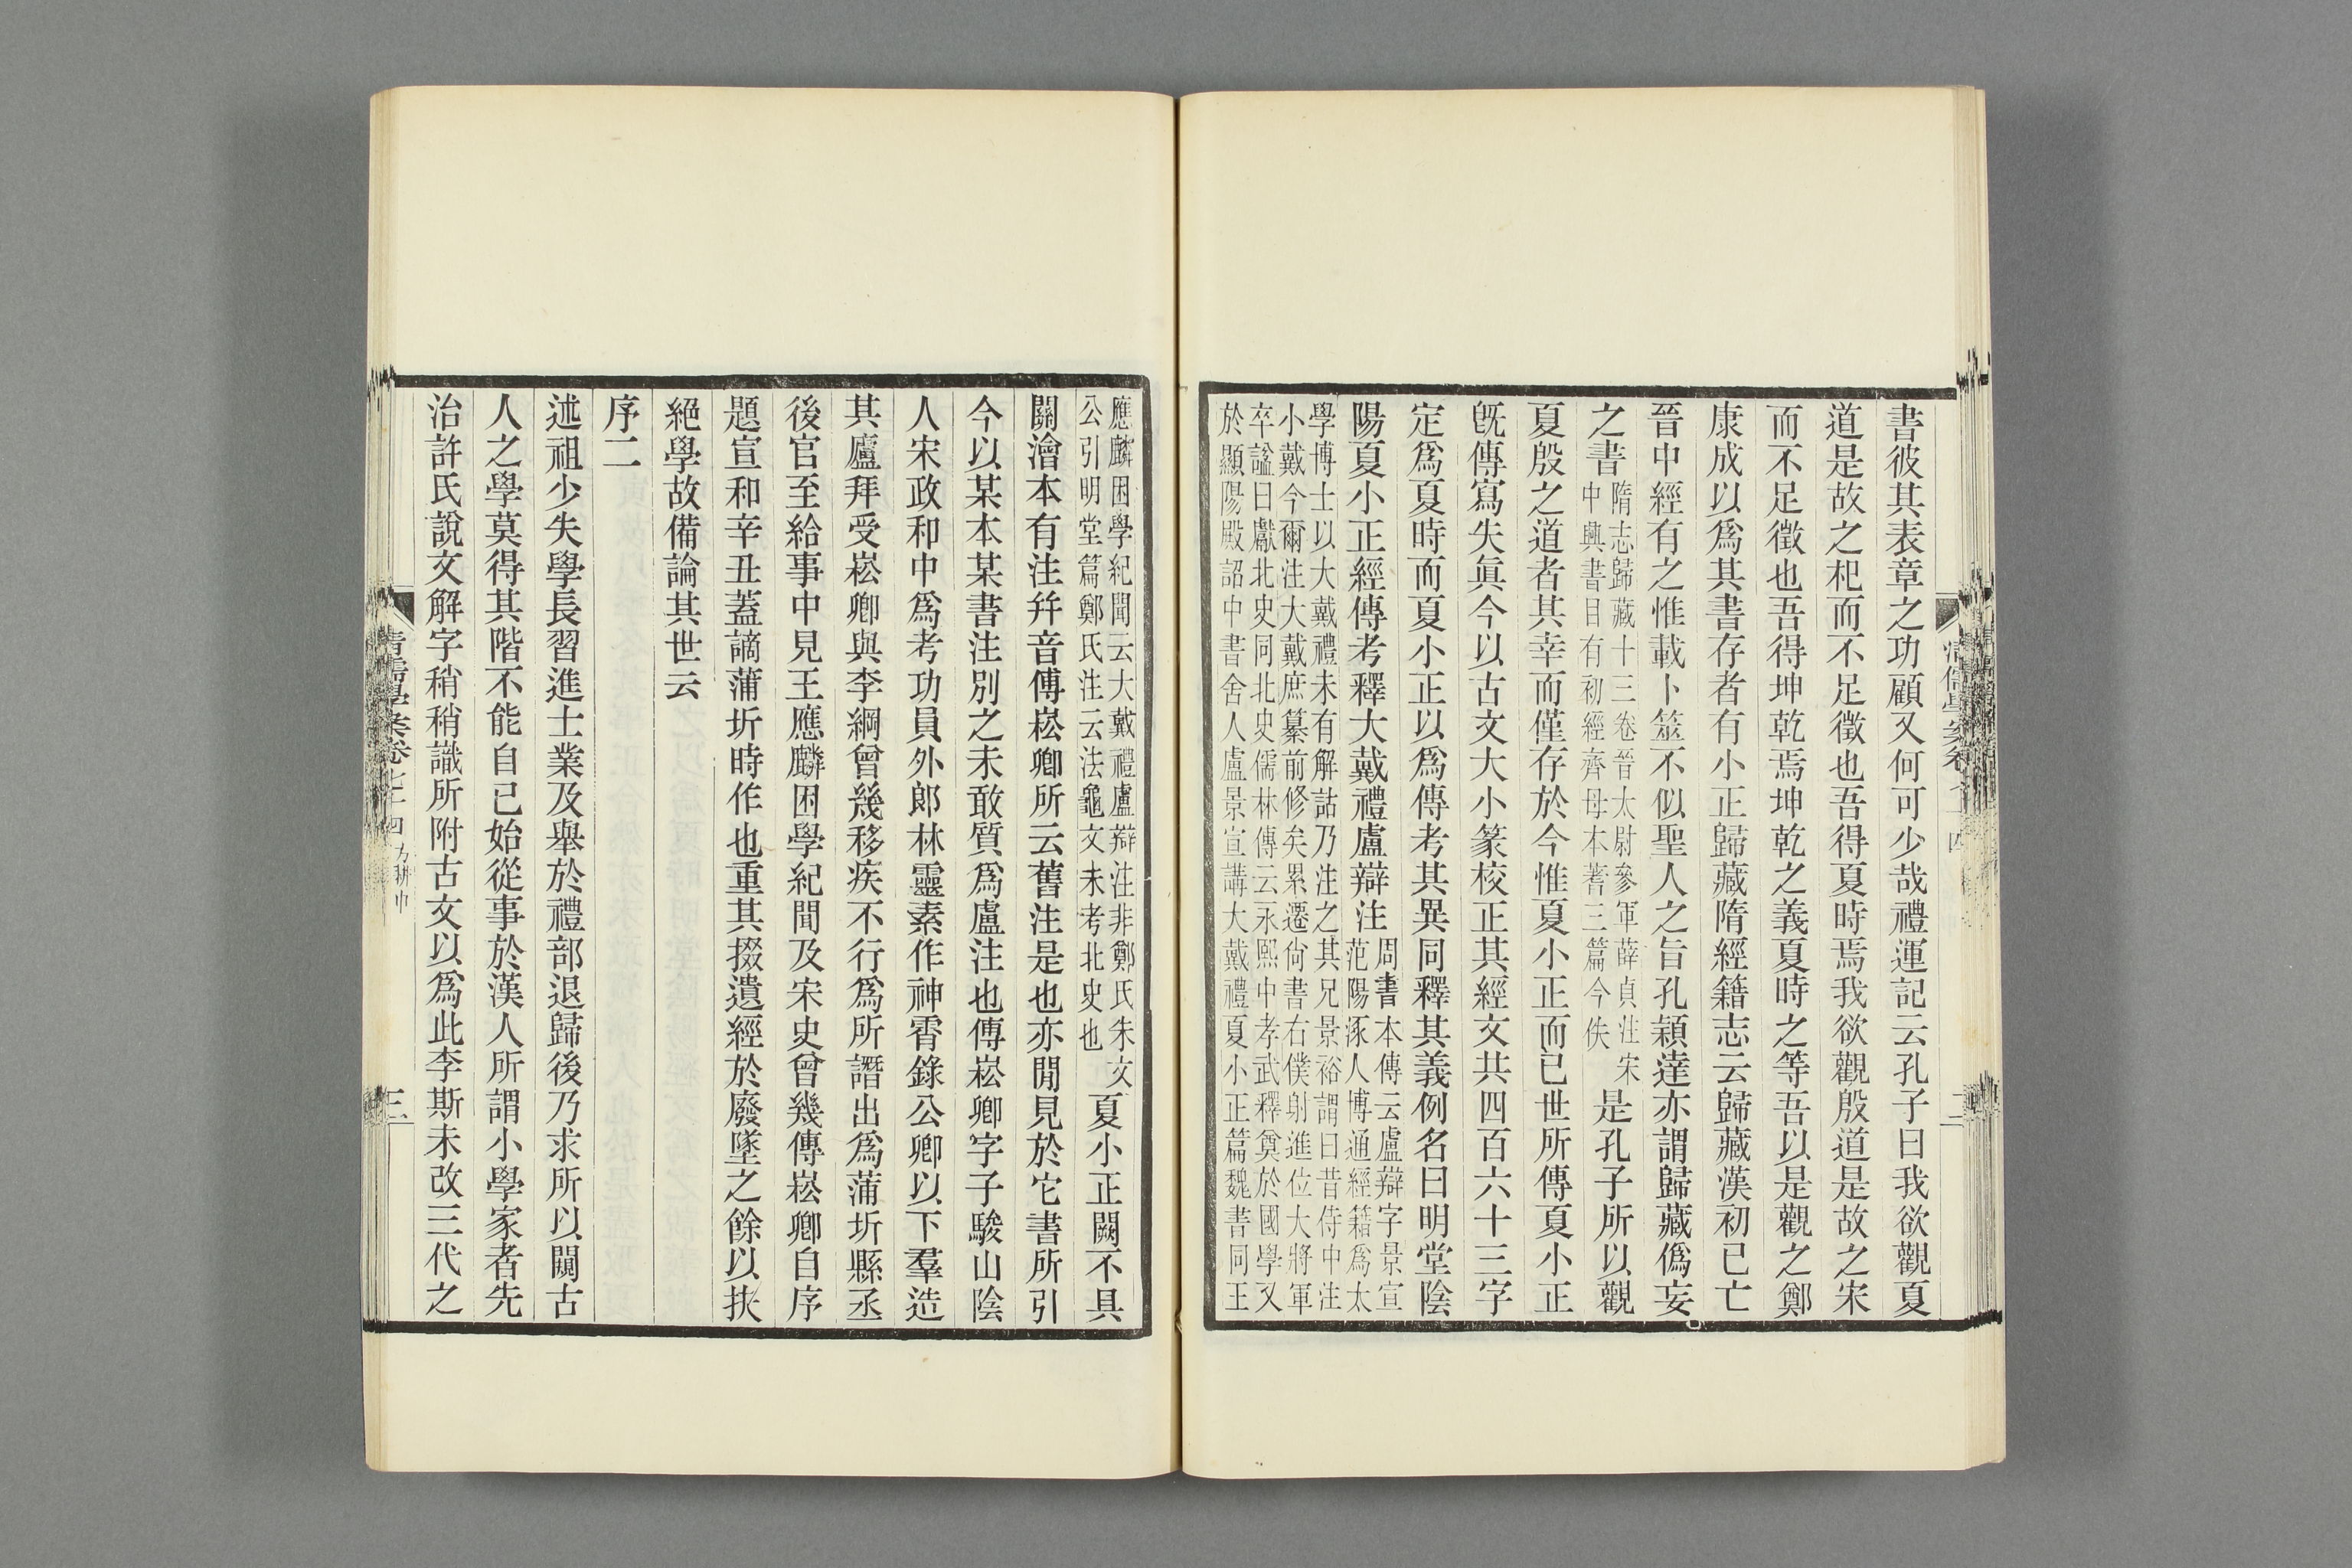 書彼其表章之功顧又何可少哉禮運記云孔子曰我欲觀夏
道是故之杞而不足徵也吾得夏時焉我欲觀殷道是故之宋
而不足徵也吾得坤乾焉坤乾之義夏時之等吾以是觀之鄭
康成以爲其書存者有小正歸藏隋經籍志云歸藏漢初已亡
晉中經有之惟載卜筮不似聖人之旨孔穎達亦謂歸藏僞妄
之書隋志歸藏十三卷晉太尉參軍薛貞注宋中興書目有初經齊母本蓍三篇今佚是孔子所以觀
夏殷之道者其幸而僅存於今惟夏小正而已世所傳夏小正
旣傳寫失眞今以古文大小篆校正其經文共四百六十三字
定爲夏時而夏小正以爲傳考其異同釋其義例名曰明堂陰
陽夏小正經傳考釋大戴禮盧辯注周書本傳云盧辯字景宣范陽涿人博通經籍爲太
學博士以大戴禮未有解詁乃注之其兄景裕謂曰昔侍中注
小戴今爾注大戴庶纂前修矣累遷尙書右僕射進位大將軍
卒諡曰獻北史同北史儒林傳云永熙中孝武釋奠於國學又
於顯陽殿詔中書舍人盧景宣講大戴禮夏小正篇魏書同王
應麟困學紀聞云大戴禮盧辯注非鄭氏朱文公引明堂篇鄭氏注云法龜文未考北史也夏小正闕不具
關澮本有注幷音傅崧卿所云舊注是也亦閒見於它書所引
今以某本某書注別之未敢質爲盧注也傅崧卿字子駿山陰
人宋政和中爲考功員外郎林靈素作神霄錄公卿以下羣造
其廬拜受崧卿與李綱曾幾移疾不行爲所譖出爲蒲圻縣丞
後官至給事中見王應麟困學紀聞及宋史曾幾傳崧卿自序
題宣和辛丑蓋謫蒲圻時作也重其掇遺經於廢墜之餘以扶
絕學故備論其世云
序二
述祖少失學長習進士業及舉於禮部退歸後乃求所以闚古
人之學莫得其階不能自已始從事於漢人所謂小學家者先
治許氏說文解字稍稍識所附古文以爲此李斯未改三代之
清儒學案卷七十四 方耕中
三